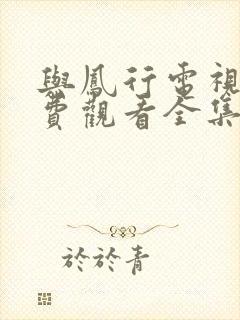 與鳳行電視
費觀看全集
於於青